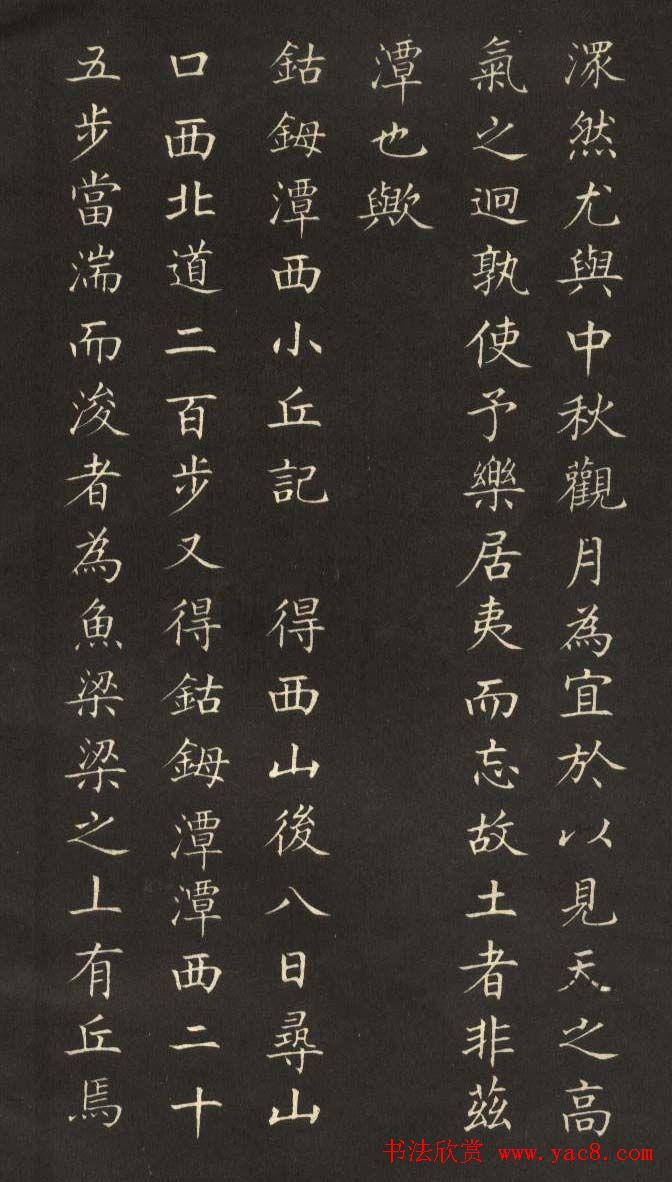 潀然尤與中秋觀月為宜於以見天之高
氣之迥孰使予樂居夷而忘故土者非茲
潭也歟
鈷鉧潭西小丘記 得西山後八日尋山
口西北道二百步又得鈷鉧潭潭西二十
五步當湍而浚者為魚梁梁之上有丘焉
书法欣赏 www.yac8.com